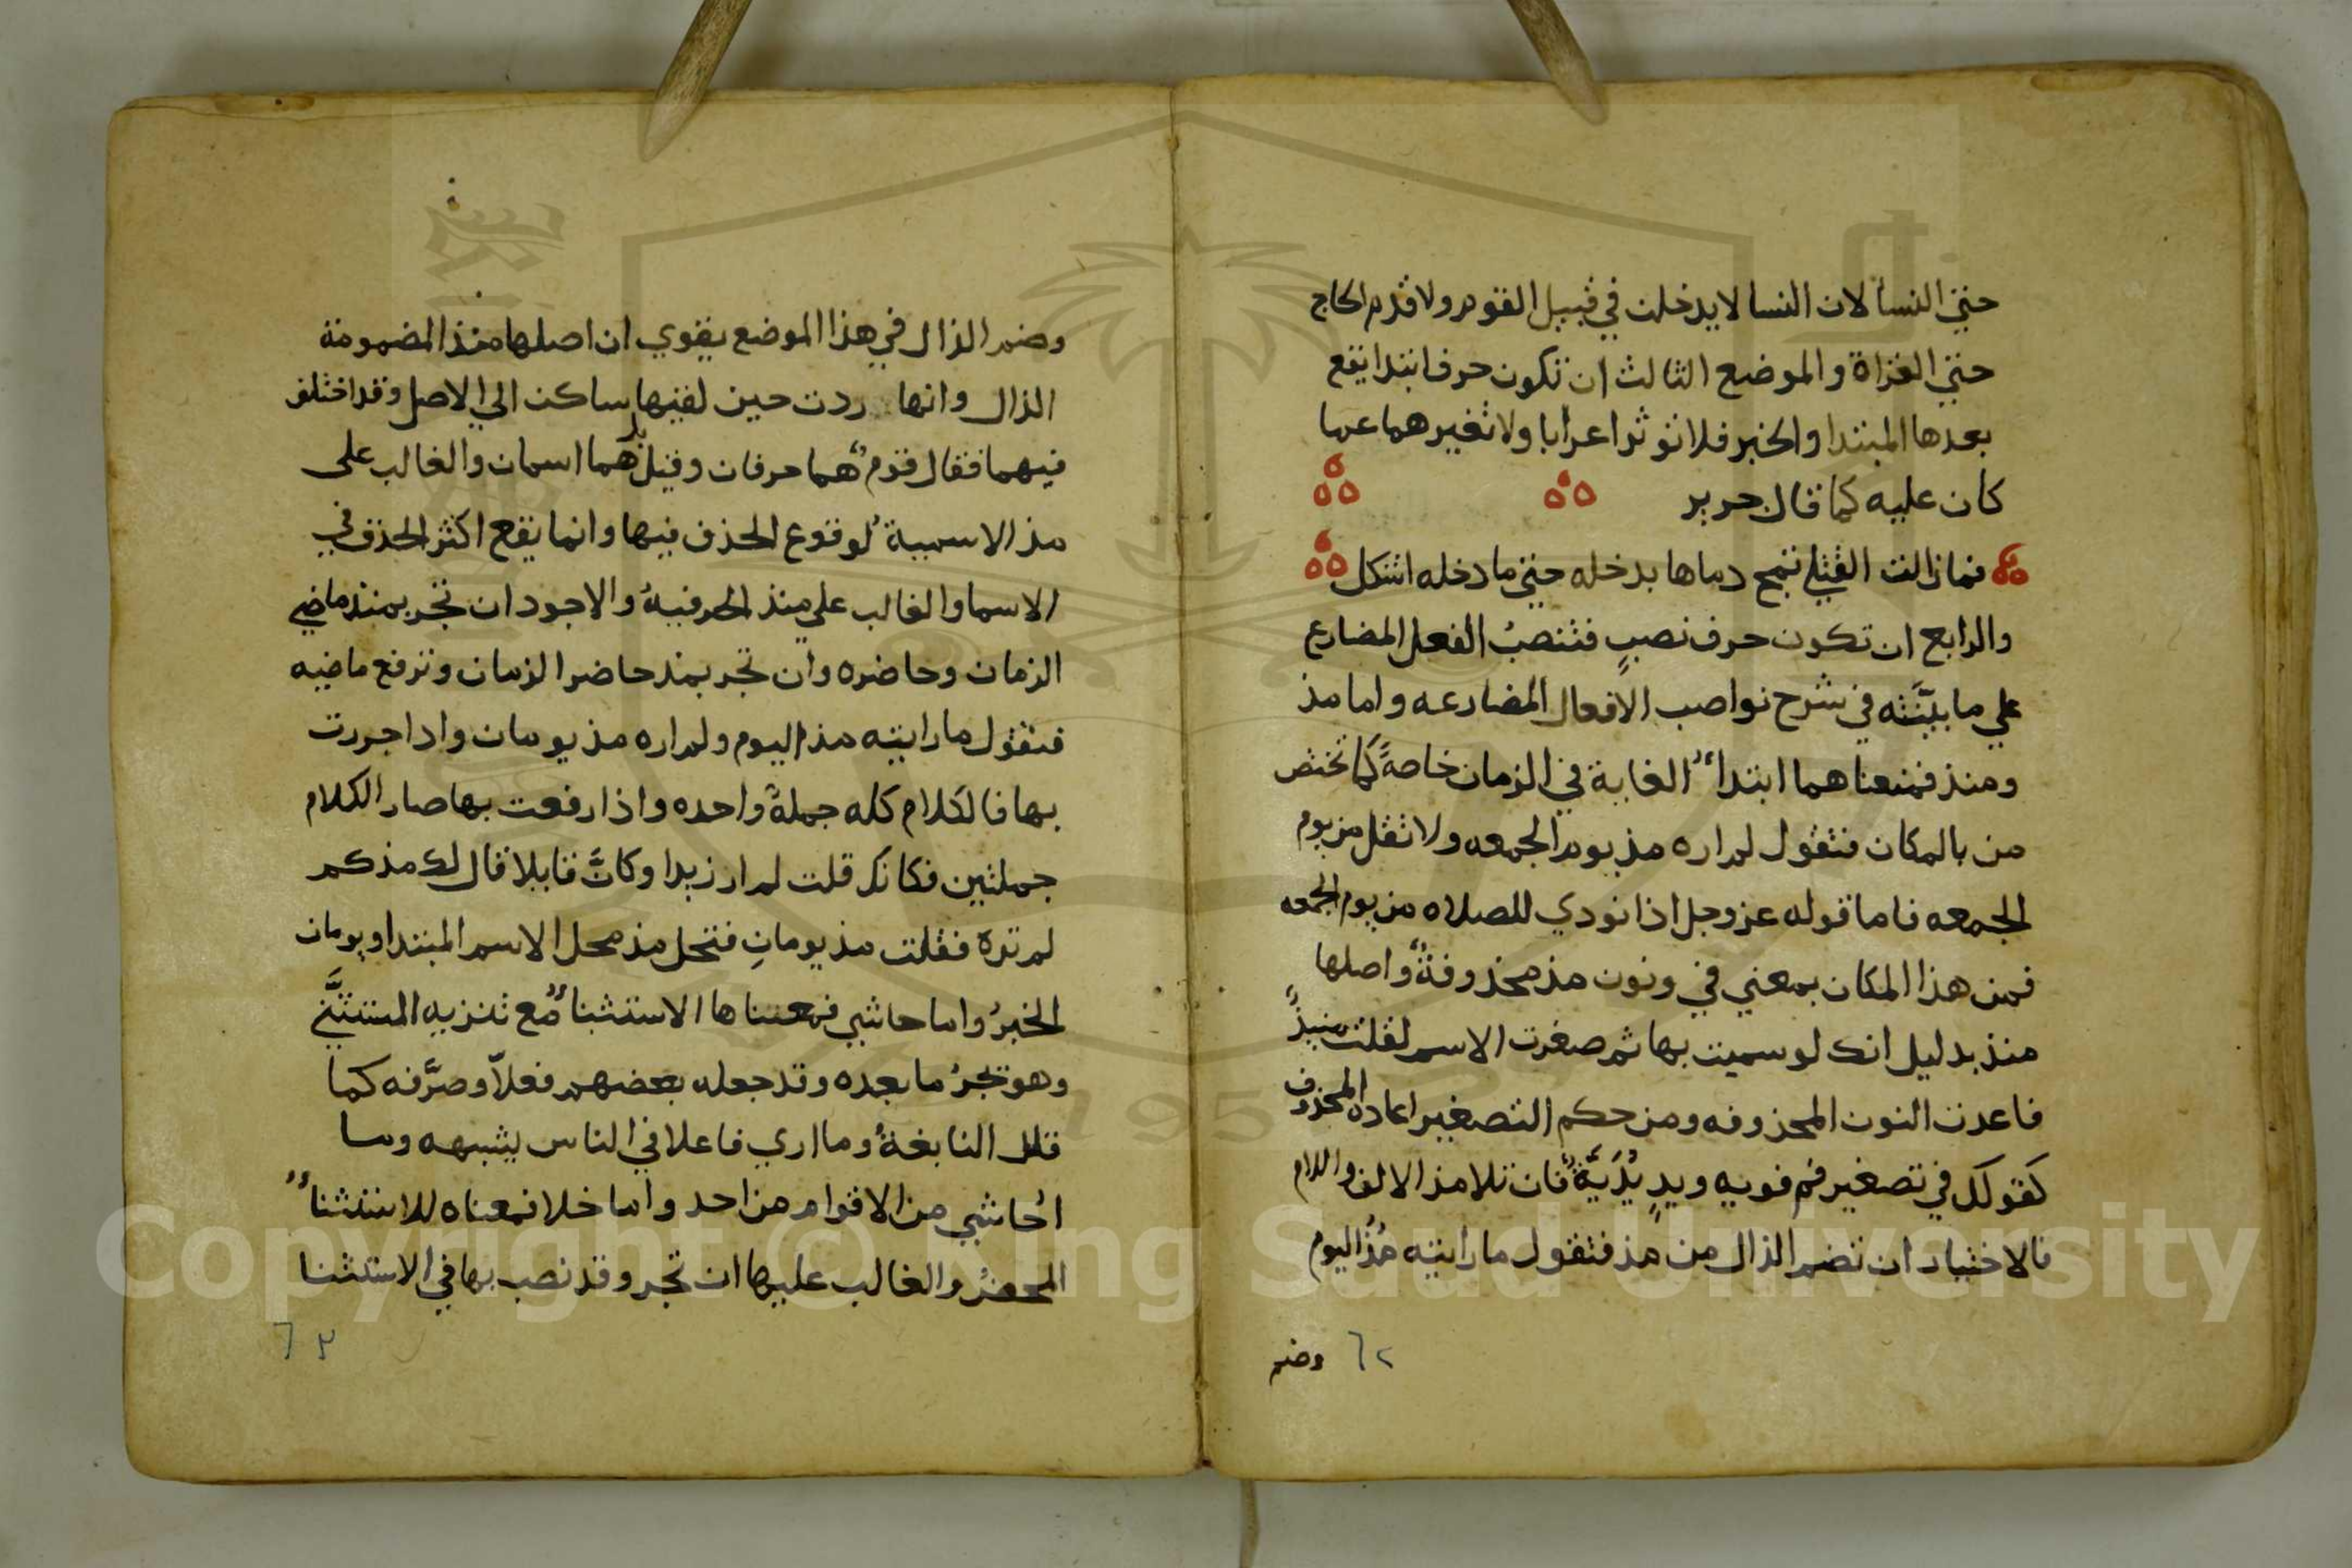 حتي النساء لان النسا لا يدخلن في قبيل القوم ولا قدم الحاج
حتي الغزاة والموضع الثالث ان تكون حرف ابتدا يقع
بعدها المبتدا والخبر فلا توثر اعرابا ولا تغيرهما عما
كان عليه كما قال جرير
فما زالت القتلي تمج دماها بدخله حتي ما دخله اشكل
والرابع ان تكون حرف نصبٍ فتنصبُ الفعل المضارع
علي ما بيَّنته في شرح نواصب الافعال المضارعه واما مذ
ومنذ فمعناهما ابتداءُ الغاية في الزمان خاصةً كما تختص
من بالمكان فتقول لم اره مذ يوم الجمعه ولا تقل من يوم
الجمعه فاما قوله عز وجل اذا نودي للصلاه من يوم الجمعه
فمن هذا المكان بمعني في ونون مذ محذوفةٌ واصلها
منذ بدليل انك لو سميت بها ثم صغرت الاسم لقلت منيذٌ
فاعدت النون المحذوفه ومن حكم التصغير اعادة المحذوف
كقولك في تصغير فم فويه ويدٍ يُدَيَّةٌ فان تلا مذ الالف واللام
فالاختيار ان تضم الذال من مذ فتقول ما رايته مُذُ اليوم
وضم
٦٢
وضم الذال في هذا الموضع يقوي ان اصلها منذ المضمومة
الذال وانها ردت حين لقيها ساكن الي الاصل وقد اختلف
فيهما فقال قومٌ هما حرفان وقيل بل هما اسمان والغالب على
مذ الاسميةُ لوقوع الحذف فيها وانما يقع اكثر الحذف في
الاسما والغالب علي منذ الحرفيةُ والاجود ان تجر بمنذ ماضي
الزمان وحاضره وان تجر بمذ حاضر الزمان وترفع ماضيه
فتقول ما رايته مذ اليوم ولم اره مذ يومان واذا جررت
بها فالكلام كله جملةً واحده واذا رفعت بها صار الكلام
جملتين فكانك قلت لم ار زيدا وكانَّ قايلا قال لك مذ كم
لم تره فقلت مذ يومانِ فتحل مذ محل الاسم المبتدا ويومان
الخبرُ واما حاشي فمعناها الاستثناءُ مع تنزيه المستثنَّي
وهو تجرُ ما بعده وقد جعله بعضهم فعلاً وصرَّفه كما
قال النابغةُ وما اري فاعلا في الناس يشبهه وما
اُحاشي من الاقوام من احد واما خلا فمعناه للاستثناءُ
المحضُ والغالب عليها ان تجر وقد نصب بها في الاستثنا
٦٣
Copyright © King Saud University